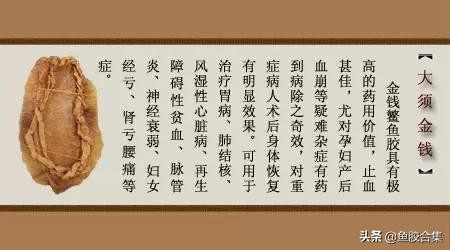 【大须金钱】
金钱鳘鱼胶具有极
高的药用价值，止血
甚佳，尤对孕妇产后
血崩等疑难杂症有药
到病除之奇效，对重
症病人术后身体恢复
有明显效果。可用于
治疗胃病、肺结核、
风湿性心脏病、再生
障碍性贫血、脉管
炎、神经衰弱、妇女
经亏、肾亏腰痛等
症。
头条 @鱼胶合集